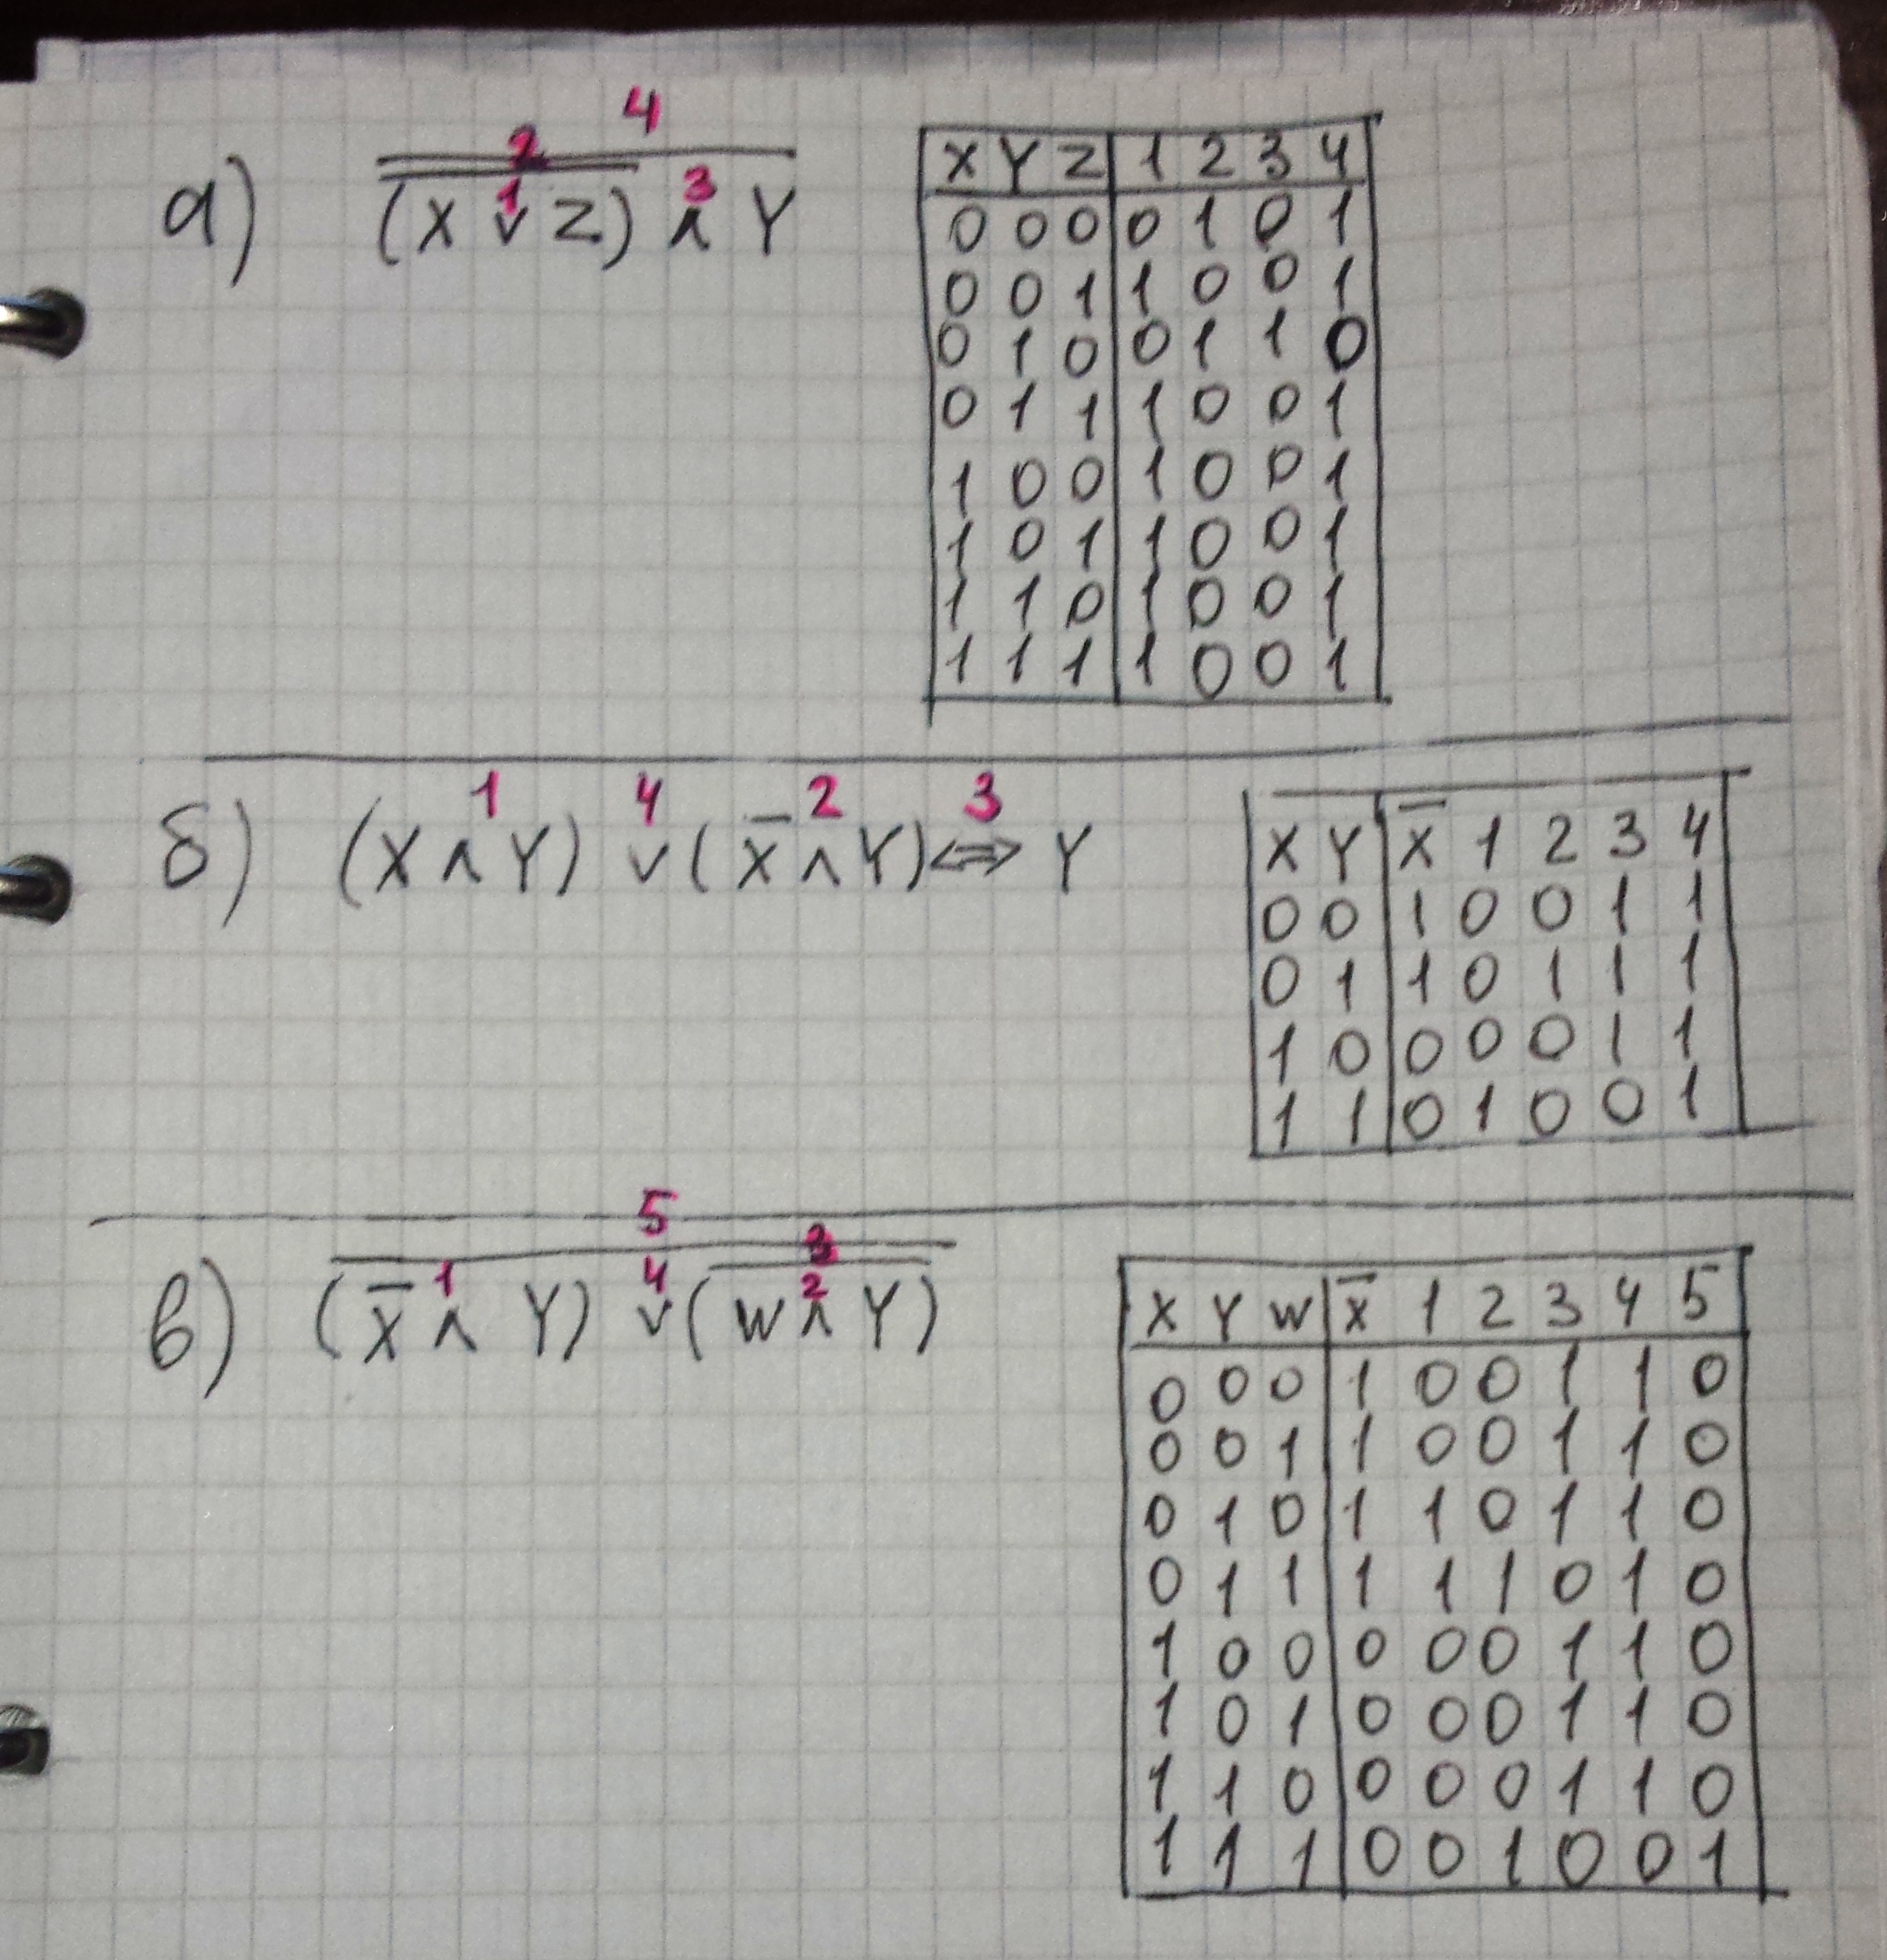 4
2
1 3
а) (X ∨ Z) ∧ Y
X Y Z 1 2 3 4
0 0 0 0 1 0 1
0 0 1 1 0 0 1
0 1 0 0 1 1 0
0 1 1 1 0 0 1
1 0 0 1 0 0 1
1 0 1 1 0 0 1
1 1 0 1 0 0 1
1 1 1 1 0 0 1
1 4 2 3
б) (X ∧ Y) ∨ (X̅ ∧ Y) ⇔ Y
X Y X̅ 1 2 3 4
0 0 1 0 0 1 1
0 1 1 0 1 1 1
1 0 0 0 0 1 1
1 1 0 1 0 0 1
5
3
1 4 2
в) (X̅ ∧ Y) ∨ (W ∧ Y)
X Y W X̅ 1 2 3 4 5
0 0 0 1 0 0 1 1 0
0 0 1 1 0 0 1 1 0
0 1 0 1 1 0 1 1 0
0 1 1 1 1 1 0 1 0
1 0 0 0 0 0 1 1 0
1 0 1 0 0 0 1 1 0
1 1 0 0 0 0 1 1 0
1 1 1 0 0 1 0 0 1